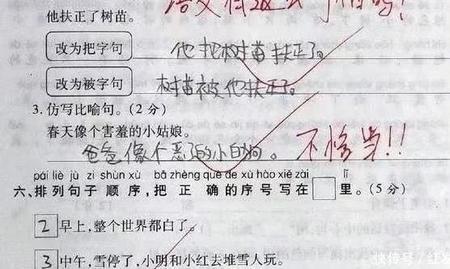 他扶正了树苗。
改为把字句
他把树苗扶正了。
改为被字句
树苗被他扶正了。
3. 仿写比喻句。(2分)
春天像个害羞的小姑娘。
爸爸像个恶的小白狗。
不恰当!!
pái liè jù zi shùn xù bǎ zhèng què de xù hào xiě zài lǐ
六、排列句子 顺序,把 正 确 的序号写在□里。(5分)
2 早上,整个世界都白了。
3 中午,雪停了,小明和小红去堆雪人玩。
快传号/红发